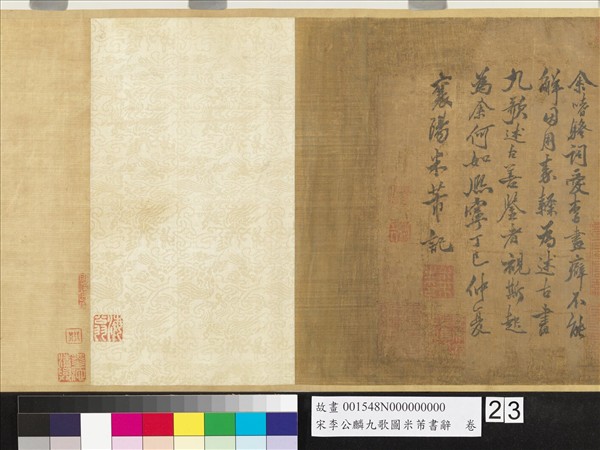 余嗜騷詞愛李畫癖不能
解因用素縑為述古書
九歌述古善鑒者視斯起
為余何如熙寧丁巳仲夏
襄陽米芾記
故畫 001548N000000000
宋李公麟九歌圖米芾書辭 卷
23